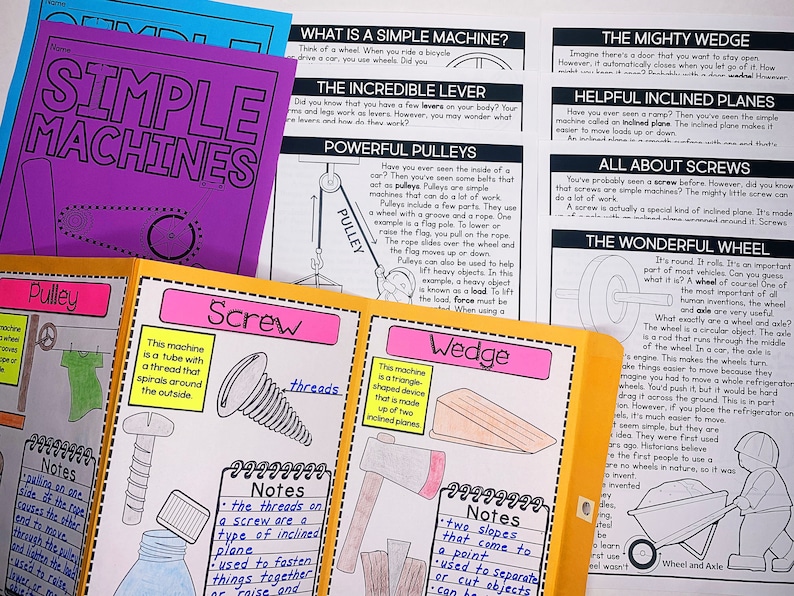 Name
SIMPLE
Name
SIMPLE
MACHINES
WHAT IS A SIMPLE MACHINE?
Think of a wheel. When you ride a bicycle
or drive a car, you use wheels. Did you
THE INCREDIBLE LEVER
Did you know that you have a few levers on your body? Your
arms and legs work as levers. However, you may wonder what
are levers and how do they work?
POWERFUL PULLEYS
Have you ever seen the inside of a
car? Then you've seen some belts that
act as pulleys. Pulleys are simple
machines that can do a lot of work.
Pulleys include a few parts. They use
a wheel with a groove and a rope. One
example is a flag pole. To lower or
raise the flag, you pull on the rope.
The rope slides over the wheel and
the flag moves up or down.
Pulleys can also be used to help
lift heavy objects. In this
example, a heavy object
is known as a load. To lift
the load, force must be
created. When using a
PULLEY
THE MIGHTY WEDGE
Imagine there's a door that you want to stay open.
However, it automatically closes when you let go of it. How
might you keep it open? Probably with a door wedge! However,
HELPFUL INCLINED PLANES
Have you ever seen a ramp? Then you've seen the simple
machine called an inclined plane. The inclined plane makes it
easier to move loads up or down.
An inclined plane is a smooth surface with one end that's
ALL ABOUT SCREWS
You've probably seen a screw before. However, did you know
that screws are simple machines? The mighty little screw can
do a lot of work.
A screw is actually a special kind of inclined plane. It's made
up of a pole with an inclined plane wrapped around it. Screws
THE WONDERFUL WHEEL
It's round. It rolls. It's an important
part of most vehicles. Can you guess
what it is? A wheel of course! One of
the most important of all
human inventions, the wheel
and axle are very useful.
What exactly are a wheel and axle?
The wheel is a circular object. The axle
is a rod that runs through the middle
of the wheel. In a car, the axle is
engine. This makes the wheels turn.
make things easier to move because they
Imagine you had to move a whole refrigerator
wheels. You'd push it, but it would be hard
drag it across the ground. This is in part
However, if you place the refrigerator on
it's much easier to move.
seem simple, but they are
idea. They were first used
years ago. Historians believe
were the first people to use a
are no wheels in nature, so it was
to invent
invented
they
to learn
first use
wheel wasn't
Wheel and Axle
Pulley
machine
wheel
grooves
rope or
Notes
• pulling on one
side of the rope
causes the other
end to move
through the pulley
and lighten the load
• used to raise
lower or move
Screw
This machine
is a tube with
a thread that
spirals around
the outside.
threads
Notes
• the threads on
a screw are a
type of inclined
plane
• used to fasten
things together
or raise and
Wedge
This machine
is a triangle-
shaped device
that is made
up of two
inclined planes.
Notes
• two slopes
that come to
a point
• used to separate
or cut objects
• can be